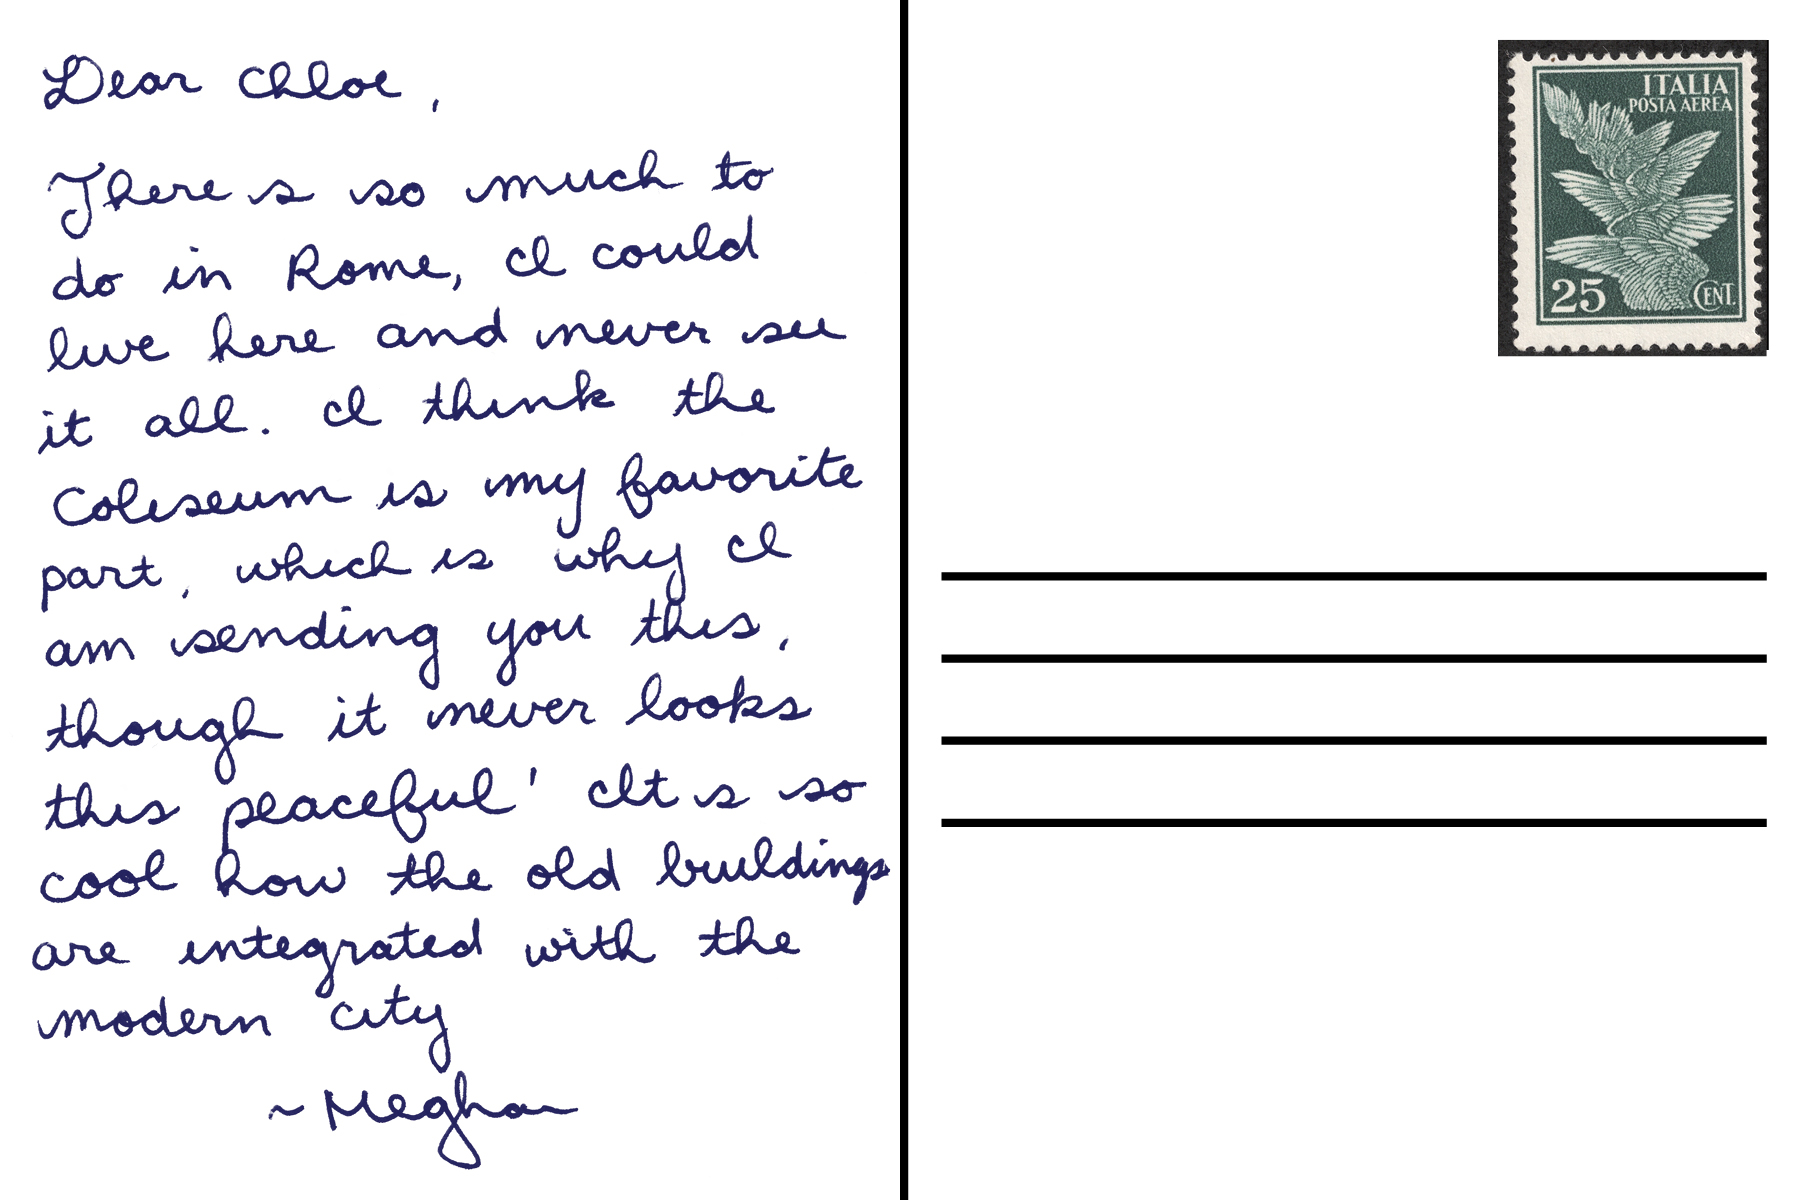 Dear Chloe,
There is so much to
do in Rome, I could
live here and never see
it all. I think the
Coliseum is my favorite
part, which is why I
am sending you this,
though it never looks
this peaceful! It is so
cool how the old buildings
are integrated with the
modern city
~Meghan
ITALIA
POSTA AEREA
25 CENT.